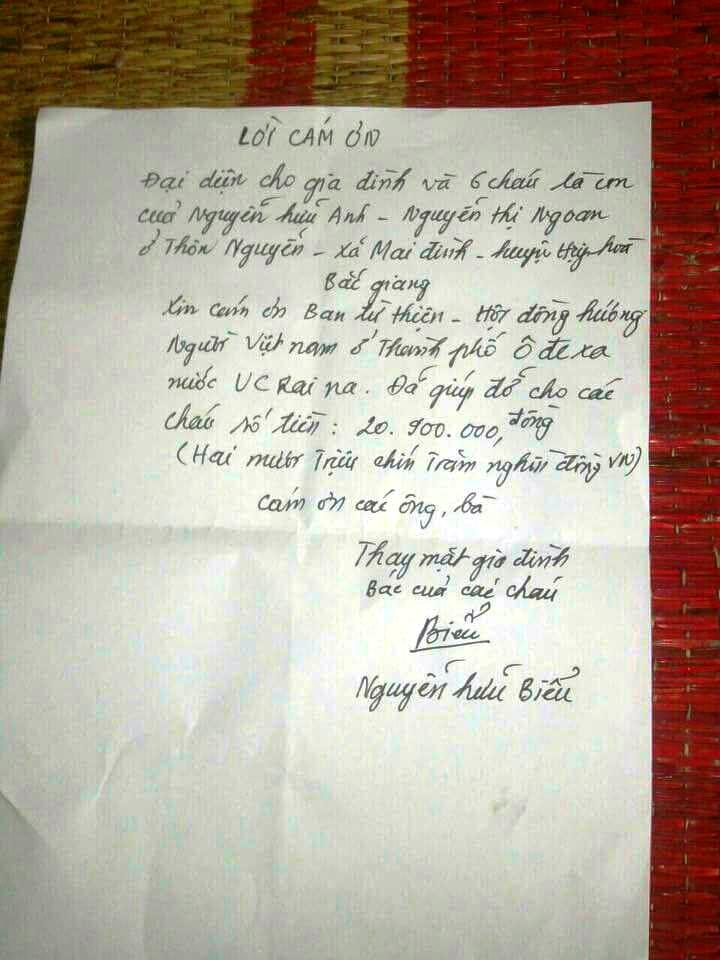 LỜI CÁM ƠN
Đại diện cho gia đình và 6 cháu là con
của Nguyễn hữu Anh - Nguyễn thị Ngoan
ở Thôn Nguyễn - xã Mai đình - huyện Hiệp hoà
Bắc giang
Xin cám ơn Ban từ thiện - Hội đồng hương
Người Việt nam ở Thành phố Ô đe xa
nước UC Rai na. Đã giúp đỡ cho các
cháu số tiền: 20.900.000, đồng
(Hai mươi Triệu chín Trăm nghìn đồng VN)
cám ơn các ông, bà
Thay mặt gia đình
Bác của các cháu
Biểu
Nguyễn hữu Biểu